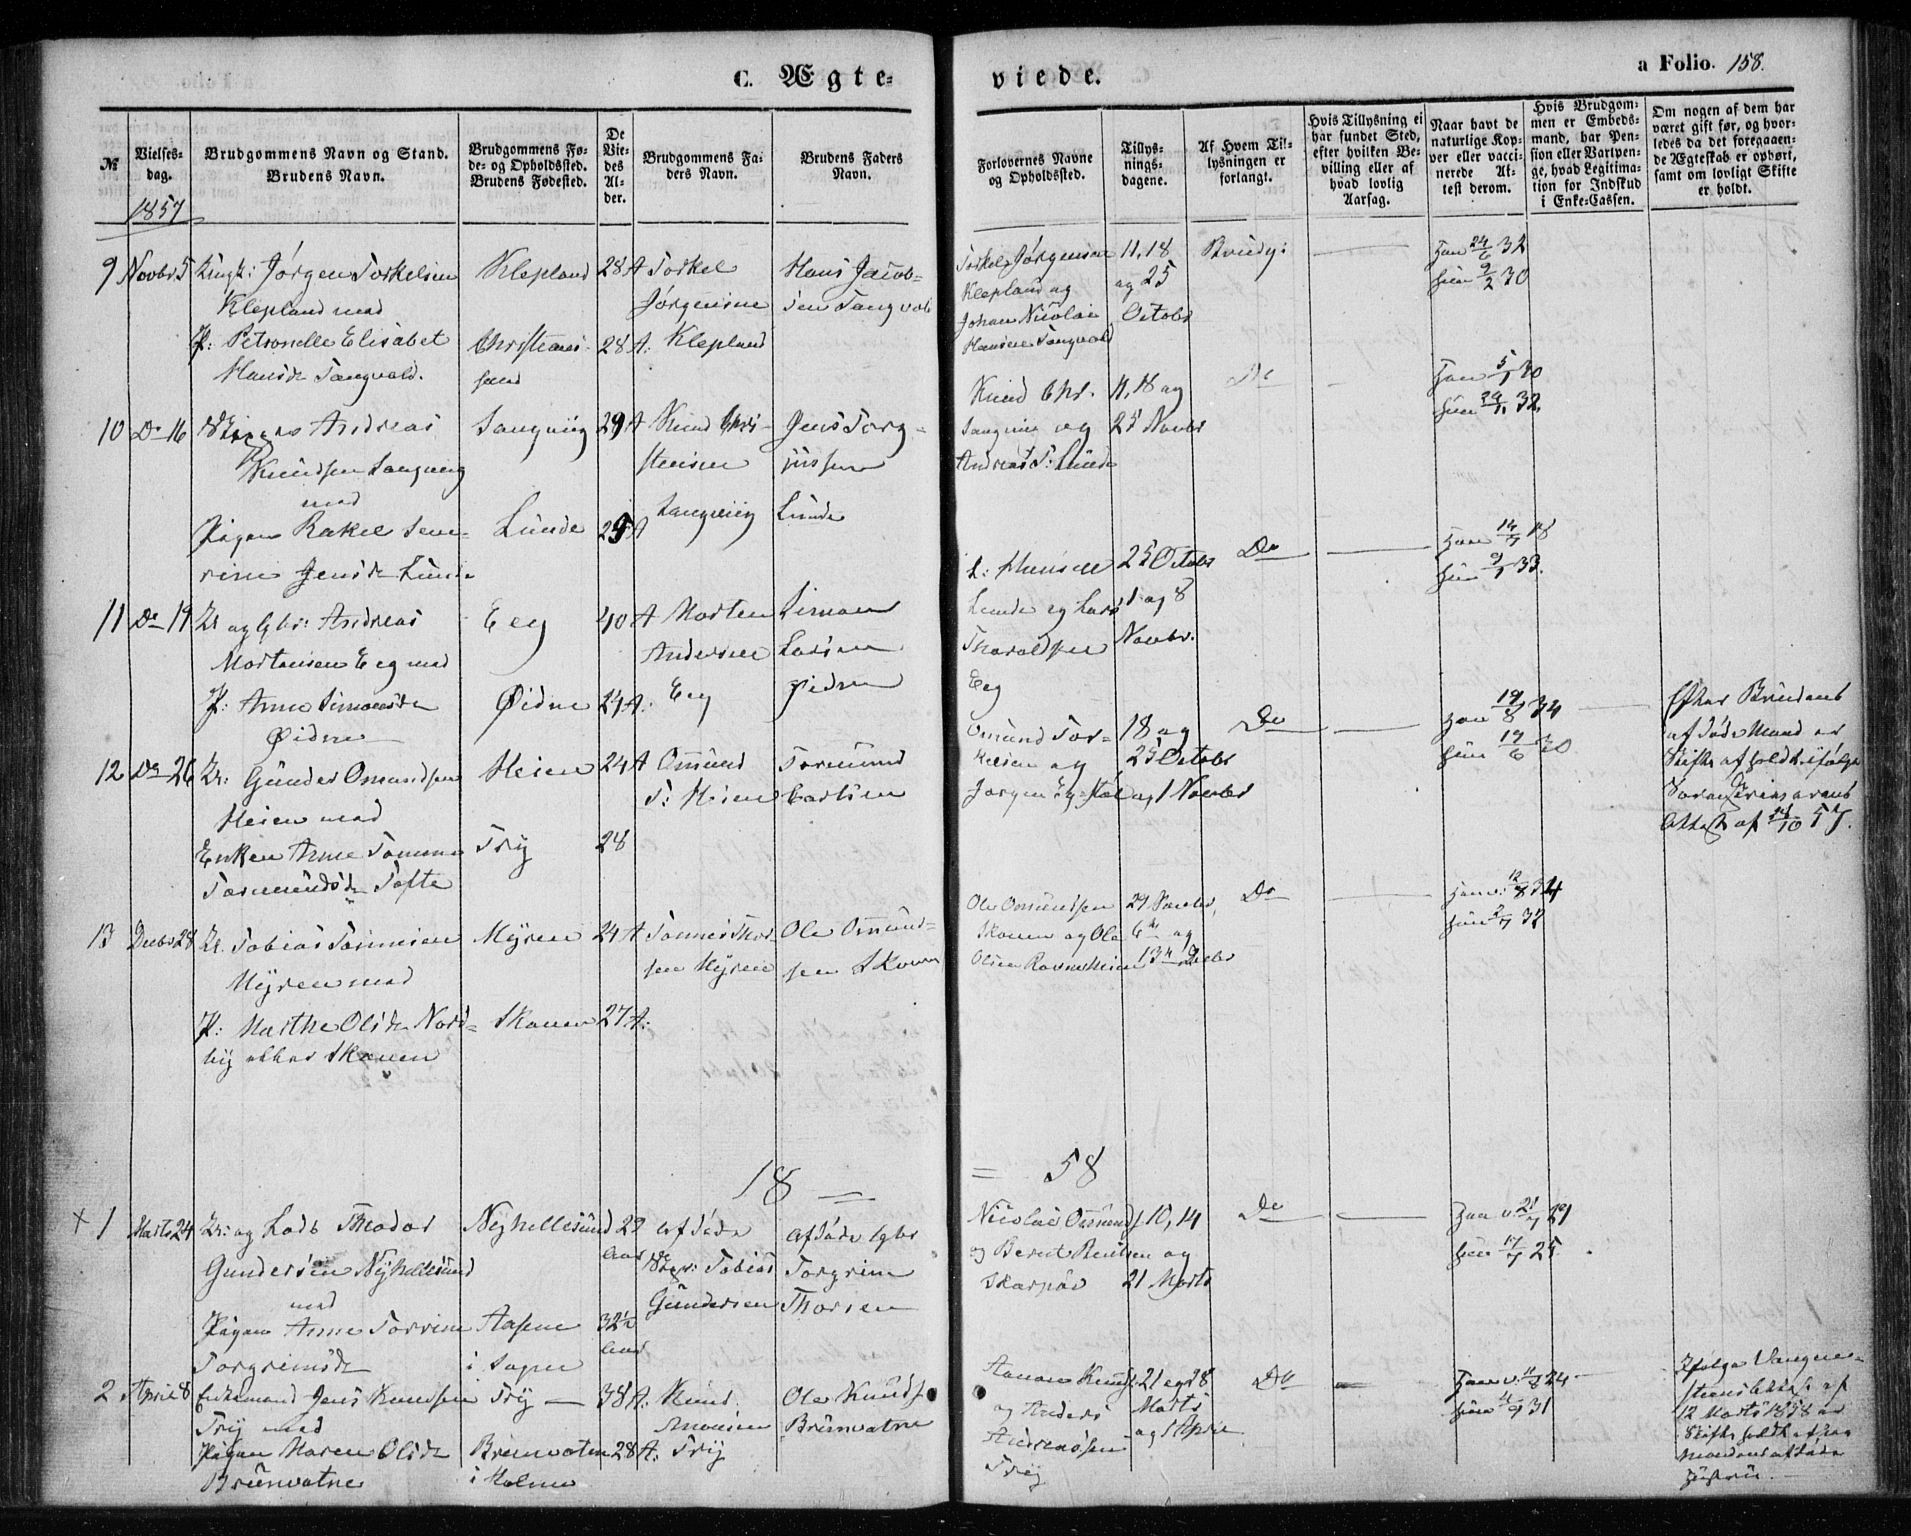 C. Ægte-
viede.
a Folio. 158.
№
Vielses-
dag.
Brudgommens Navn og Stand.
Brudens Navn.
Brudgommens Fø-
de- og Opholdssted.
Brudens Fødested.
De
Vie-
des
Al-
der.
Brudgommens Fa-
ders Navn.
Brudens Faders
Navn.
Forlovernes Navne
og Opholdssted.
Tillys-
nings-
dagene.
Af Hvem Til-
lysningen er
forlangt.
Hvis Tillysning ei
har fundet Sted,
efter hvilken Be-
villing eller af
hvad lovlig
Aarsag.
Naar havt de
naturlige Kop-
per eller vacci-
nerede At-
test derom.
Hvis Brudgom-
men er Embeds-
mand, har Pen-
sion eller Vartpen-
ge, hvad Legitima-
tion for Indskud
i Enke-Cassen.
Om nogen af dem har
været gift før, og hvor-
ledes da det foregaaen-
de Ægteskab er ophört,
samt om lovligt Skifte
er holdt.
1857
9
Novbr 5
Ungk: Jørgen Torkelsen
Klepland med
P: Petronelle Elisabet
Hansdr Tangvald.
Klepland
Christians-
sand
28 A
28 A:
Torkel
Jørgensen
Klepland
Hans Jacob-
sen Tangvald
Torkel Jørgensen
Klepland og
Johan Nicolai
Hansen Tangvald
11, 18
og 25
Octobr
Brudg:
Han 24/6 32
Hun 9/2 30
10
Do 16
Andreas
Knudsen Langveig
med
Pigen Rakel Seve-
rine Jensdr Lunde
Langveig
Lunde
29 A
29 A
Knud Chri-
stensen
Langveig
Jens Torg-
jussen
Lunde
Knud Chr.
Langveig og
Andreas T: Lunde
11, 18 og
25 Novbr
Do
Han 5/7 30
Hun 29/7 32
11
Do 19
Uk og Gbr: Andreas
Mortensen Eeg med
P: Anne Simonsdr
Øidne
Eeg
Øidne
40 A
24 A.
Morten
Andersen
Eeg
Simon
Larsen
Øidne
L: Hansen
Lunde og Lars
Tharaldsen
Eeg
25 Octobr
1 og 8
Novbr.
Do
Han 14/7 18
Hun 9/7 33.
12
Do 26
Uk: Gunder Omundsen
Heien med
Enken Anne Tomine
Tormundsdr Tofte
Heien
Try
24 A
28
Omund
T: Heien
Tormund
Carlsen
Omund Tor-
kelsen og
Jørgen
18 og
25 Octobr
og 1 Novbr
Do
Han 19/8 34
Hun 19/6 30
Efter Brudens
afdøde Mand er
Skifte afholdt ifølge
Sorenskriverens
Attest af 24/10 57.
13
Decbr 28
Uk. Tobias Tønnesen
Myren med
P: Marthe Olsdr Nord-
by eller Skouen
Myren
Skouen
24 A
27 A:
Tønnes Thor-
sen Myren
Ole Omund-
sen Skouen
Ole Omundsen
Skouen og Ole
Olsen Ravneheien
29 Novbr,
6te og
13de Decbr
Do
Han v: 12/8 34
Hun 2/7 32
18 = = 58
+ 1
Marts 24
Uk: og Lods Theodor
Gundersen Nyhellesund
med
Pigen Anne Torrine
Torgrimsdr
Nyhellesund
Aasene
i Søgne
29
Aar
32 1/2
Aar
afdøde
Tobias
Gundersen
afdøde Gbr
Torgrim
Thorsen
Nicolai Omunds
og Bernt Bentsen
Skarpøe
10, 14
og
21 Marts
Do
Han v 21/7 29
Hun 17/7 25
2
April 8
Enkemand Jens Knudsen
Try med
Pigen Maren Olsdr
Brunvatne
Try
Brunvatne
i Holme
38 A.
28 A:
Knud
Try
Ole Knuds
Brunvatne
Aanon Knuds
og Anders
Andreasen
Try
21 og 28
Marts
og 5 April
Do
Han v. 11/8 24
Hun 4/9 31
Ifølge
attest af
12 Marts 1858 er
Skifte holdt efter
Mandens afdøde
Hustru.